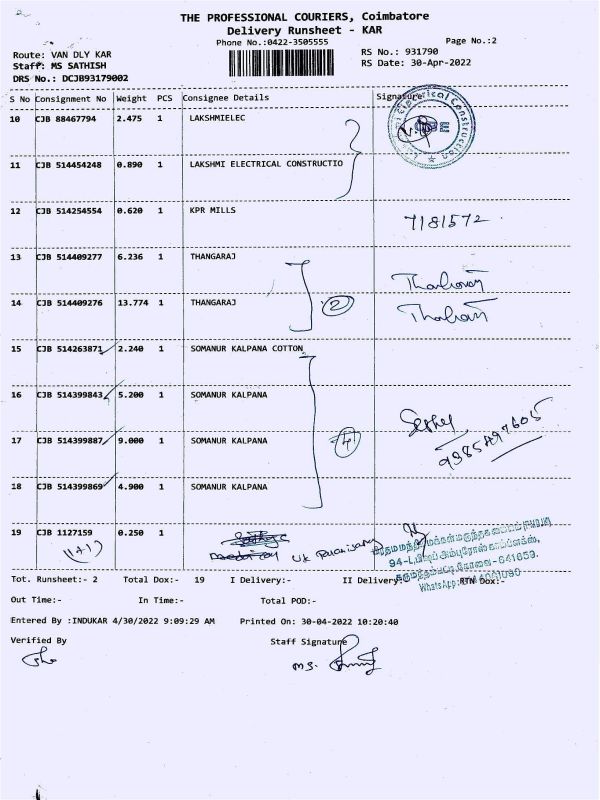 THE PROFESSIONAL COURIERS, Coimbatore
Delivery Runsheet - KAR
Phone No.:0422-3505555
Page No.:2
Route: VAN DLY KAR
RS No.: 931790
Staff: MS SATHISH
RS Date: 30-Apr-2022
DRS No.: DCJB93179002
S No Consignment No Weight PCS Consignee Details Signature
10 CJB 88467794 2.475 1 LAKSHMIELEC
11 CJB 514454248 0.890 1 LAKSHMI ELECTRICAL CONSTRUCTIO
12 CJB 514254554 0.620 1 KPR MILLS 7181572
13 CJB 514409277 6.236 1 THANGARAJ
14 CJB 514409276 13.774 1 THANGARAJ 2
15 CJB 514263871 2.240 1 SOMANUR KALPANA COTTON
16 CJB 514399843 5.200 1 SOMANUR KALPANA
17 CJB 514399887 9.000 1 SOMANUR KALPANA 4
18 CJB 514399869 4.900 1 SOMANUR KALPANA
19 CJB 1127159 0.250 1
(1+1)
Tot. Runsheet:- 2 Total Dox:- 19 I Delivery:- II Delivery:- RTN Dox:-
Out Time:- In Time:- Total POD:-
Entered By :INDUKAR 4/30/2022 9:09:29 AM Printed On: 30-04-2022 10:20:40
Verified By Staff Signature